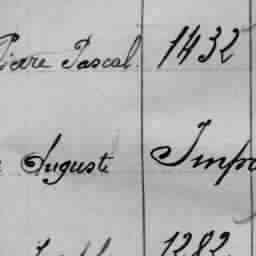 Pierre Pascal 1432
Auguste Impo
1282